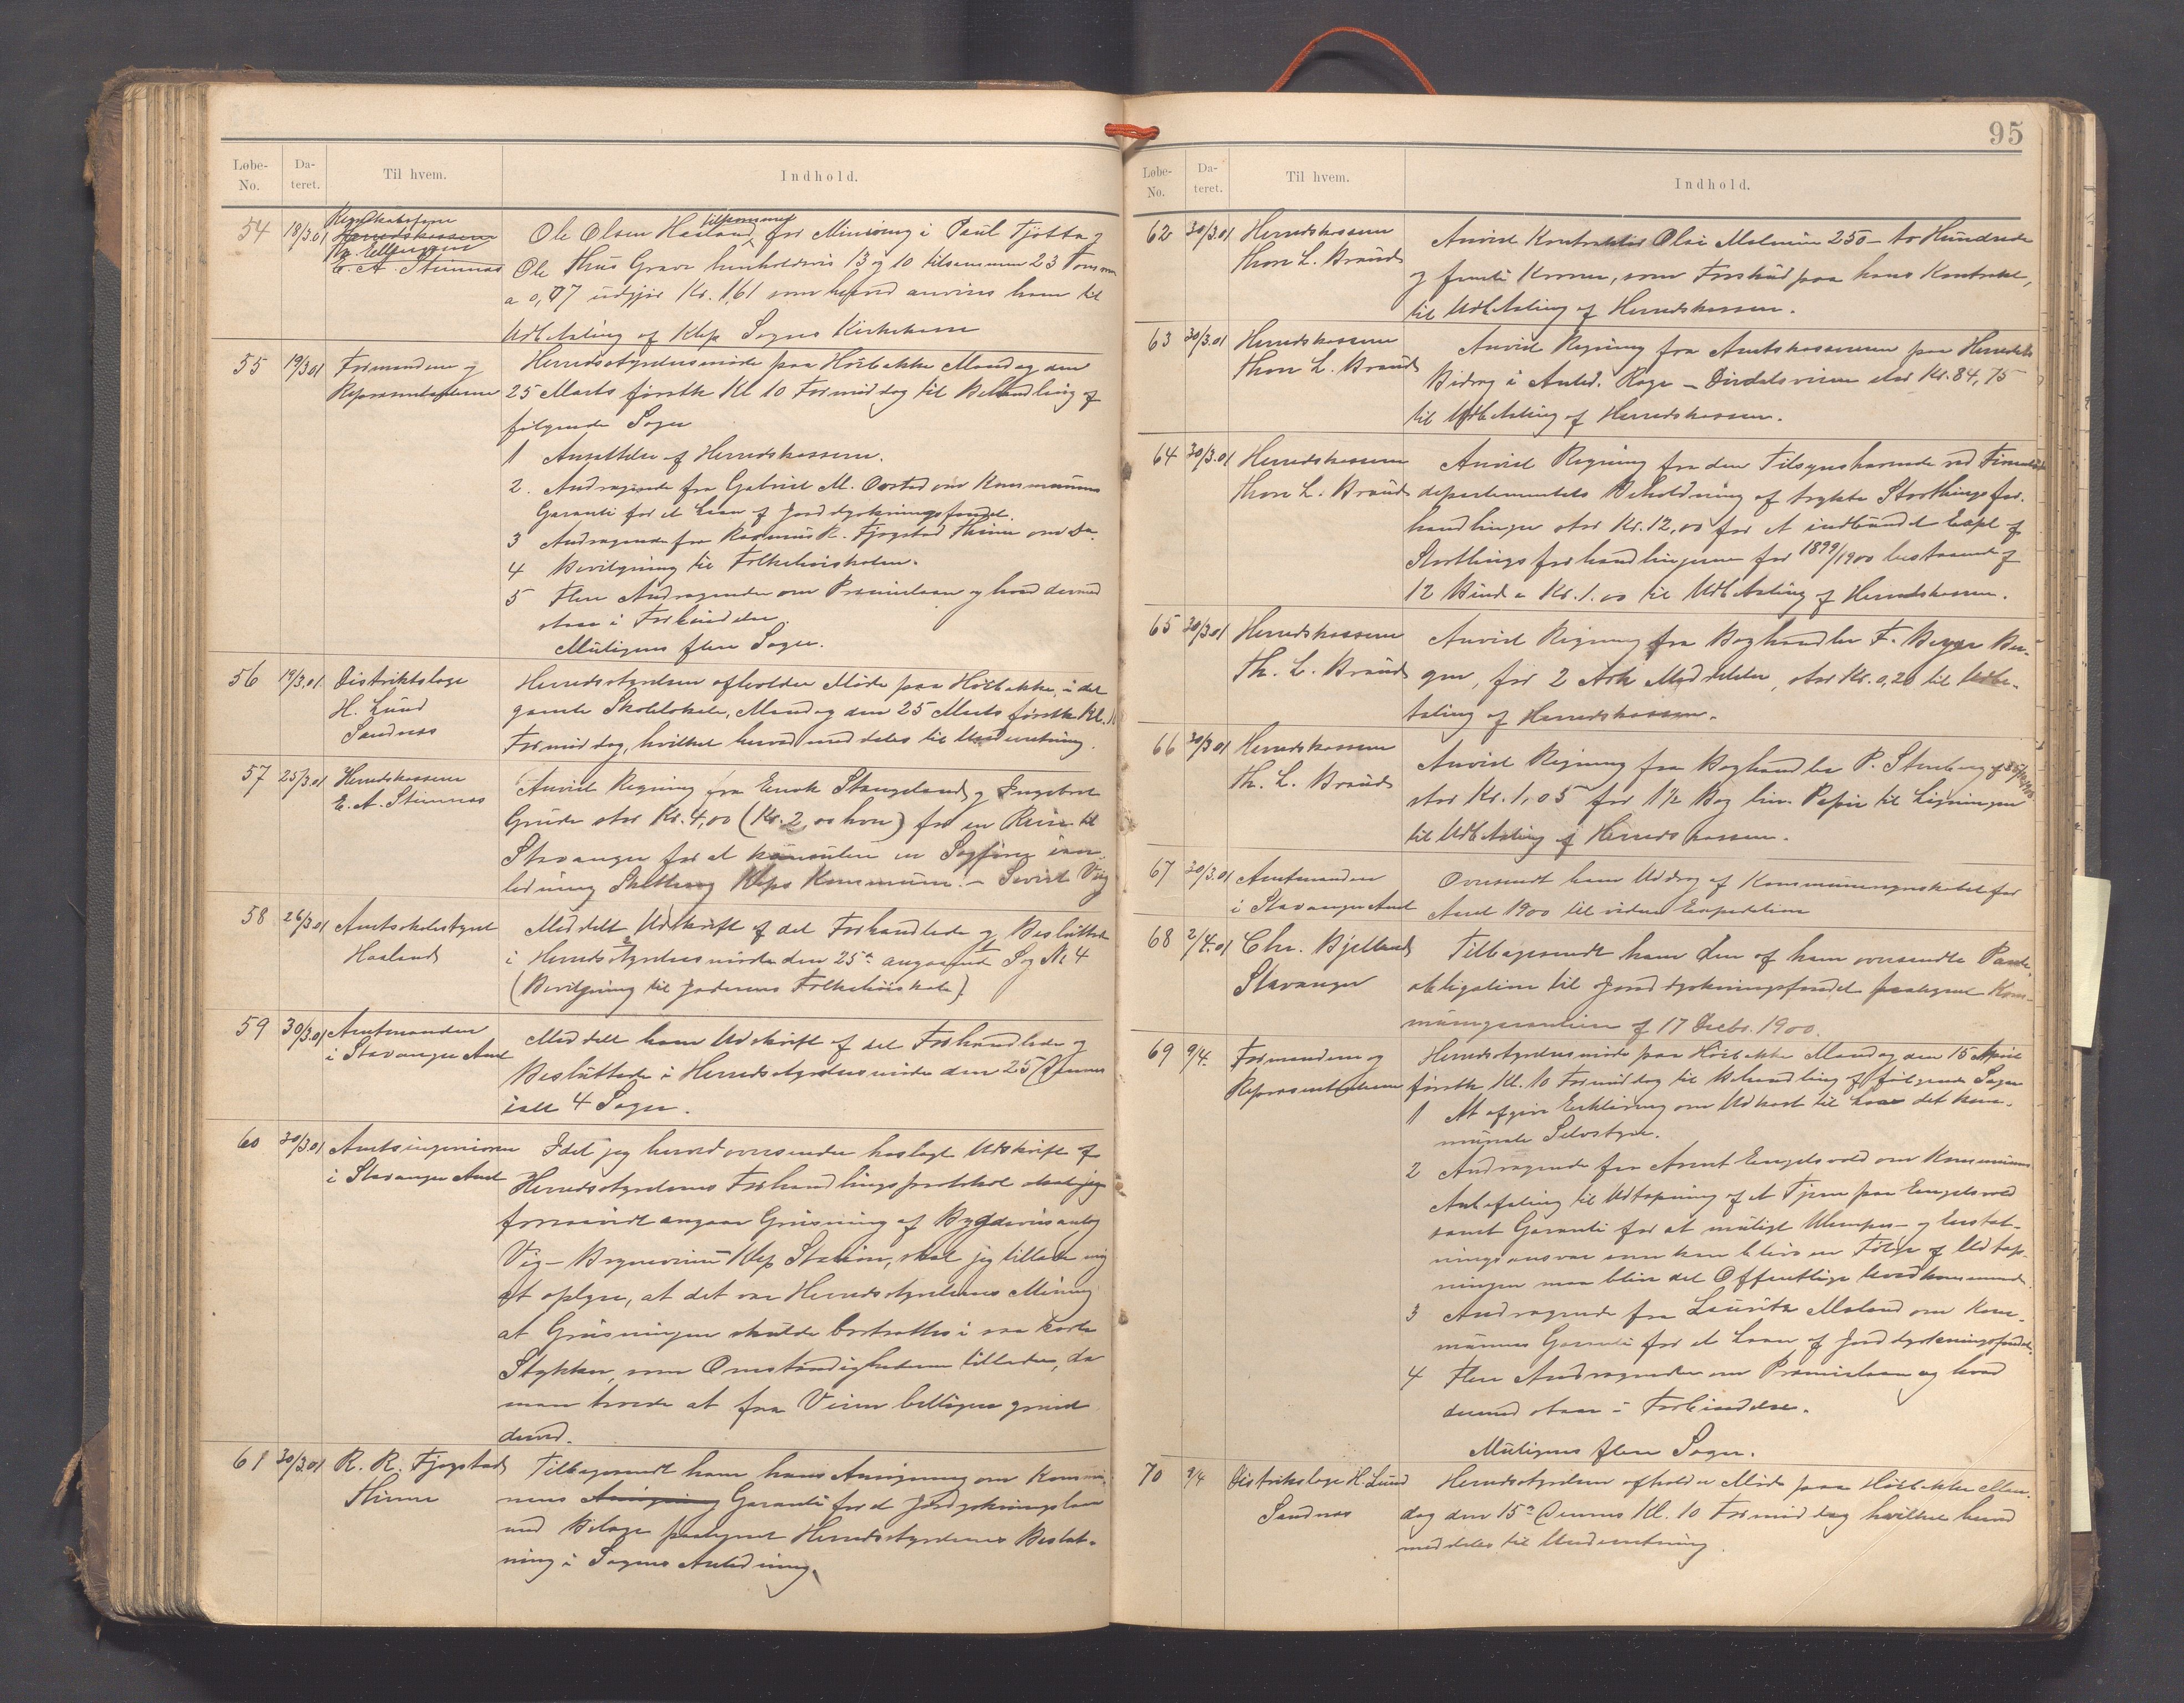 Løbe-No. Da-teret. Til hvem. Indhold.
54 18/3.01 Regnskabsfører
Herredskasserer
E. A. Stimnæs
Ole Olsen Haaland tilkommer for Minering i Paul Tjøtta og
Ole Thus Grave henholdsvis 13 og 10 tilsammen 23 Tommer
a 0,07 udgjør Kr. 1,61 som herved anvises ham til
Udbetaling af Klep Sogns Kirkekasse
55 19/3.01 Formændene og
Repræsentanterne
Herredsstyrelsesmøde paa Hørbakke Mandag den
25 Marts førstk. Kl 10 Formiddag til Behandling af
følgende Sager
1 Ansættelse af Herredskasserer.
2. Andragende fra Gabriel M. Orstad om Kommunens
Garanti for et Laan af Jorddyrkningsfondet.
3 Andragende fra Rasmus R. Fjogstad Thime om Do.
4 Bevilgning til Folkehøiskolen.
5 Flere Andragender om Præmielaan og hvad dermed
staar i Forbindelse.
Muligens flere Sager.
56 19/3.01. Distriktslæge
H. Lund
Sandnæs
Herredsstyrelsen afholder Møde paa Hørbakke, i det
gamle Skolelokale, Mandag den 25 Marts førstk. Kl. 10
Formiddag, hvilket herved meddeles til Underretning.
57 25/3.01 Herredskasserer
E. A. Stimnæs
Anvist Regning fra Enok Stangeland og Ingebret
Grude stor Kr. 4,00 (Kr. 2,00 hver) for en Reise til
Stavanger for at konsulere en Sagfører i an-
ledning Kleps Kommune. - Sivert Vig
58 26/3.01 Amtsskolestyret
Haaland
Meddelt Udskrift af det Forhandlede og Besluttede
i Herredsstyrelsesmøde den 25de angaaende Sag No 4
(Bevilgning til Jæderens Folkehøiskole).
59 30/3.01 Amtmanden
i Stavanger Amt
Meddelt ham Udskrift af det Forhandlede og
Besluttede i Herredsstyrelsesmøde den 25 Dennes
ialt 4 Sager.
60 30/3.01 Amtsingeniøren
i Stavanger Amt
Idet jeg herved oversender hoslagt Udskrift af
Herredsstyrelsens Forhandlingsprotokol skal jeg
forsaavidt angaar Grusning af Bygdeveisanlæg
Vig - Bryneveien Klep Station, skal jeg tillade mig
at oplyse, at det var Herredsstyrelsens Mening
at Grusningen skulde bortsættes i saa korte
Stykker, som Omstændighederne tillader, da
man troede at faa Veien billigere gruset
derved.
61 30/3.01 R. R. Fjogstad
Thime
Tilbagesendt ham hans Ansøgning om Kommu-
nens Ansøgning Garanti for et Jorddyrkningslaan
med Bilage paategnet Herredsstyrelsens Beslut-
ning i Sagens Anledning.
95
Løbe-No. Da-teret. Til hvem. Indhold.
62 30/3.01 Herredskasserer
Thore L. Braud
Anvist Kontraktør Olai Malmin 250 - to Hundrede
og femti Kroner, som Forskud paa hans Kontrakt,
til Udbetaling af Herredskassen.
63 30/3.01 Herredskasserer
Thore L. Braud
Anvist Regning fra Amtskassereren paa Herredets
Bidrag i Anled. Rage - Dirdalsveien stor Kr. 84,75
til Udbetaling af Herredskassen.
64 30/3.01 Herredskasserer
Thore L. Braud
Anvist Regning fra den Tilsynshavende ved Finants-
departementets Beholdning af trykte Storthingsfor-
handlinger stor Kr. 12,00 for et indbundet Expl. af
Storthingsforhandlingerne for 1899/1900 bestaaende af
12 Bind a Kr. 1.00 til Udbetaling af Herredskassen.
65 30/3.01 Herredskasserer
Th. L. Braud
Anvist Regning fra Boghandler F. Beyer Ber-
gen, for 2 Ark Meddelelse, stor Kr. 0,20 til Udbe-
taling af Herredskassen.
66 30/3.01 Herredskasserer
Th. L. Braud
Anvist Regning fra Boghandler P. Stenberg af
stor Kr. 1,05 for 1 1/2 Bog lin. Papir til Ligningen
til Udbetaling af Herredskassen.
67 30/3.01 Amtmanden
i Stavanger Amt
Oversendt ham Uddrag af Kommuneregnskabet for
Aaret 1900 til videre Expedition
68 2/4.01 Chr. Bjelland
Stavanger
Tilbagesendt ham den af ham oversendte Pante-
obligation til Jorddyrkningsfondet paategnet Kom-
munegarantien af 17 Decbr. 1900.
69 9/4. Formændene og
Repræsentanterne
Herredsstyrelsesmøde paa Hørbakke Mandag den 15 April
førstk. Kl. 10 Formiddag til Behandling af følgende Sager
1 At afgive Erklæring om Udkast til Lov det kom-
munale Selvstyre.
2 Andragende fra Arent Engelsvold om Kommunens
Anbefaling til Udtapning af et Tjern paa Engelsvold
samt Garanti for at muligt Ulempes- og Erstat-
ningsansvar som kan blive en Følge af Udtap-
ningen maa blive det Offentlige uvedkommende.
3 Andragende fra Lauritz Maland om Kom-
munens Garanti for et Laan af Jorddyrkningsfondet.
4 Flere Andragender om Præmielaan og hvad
dermed staar i Forbindelse.
Muligens flere Sager.
70 9/4 Distriktslæge H. Lund
Sandnæs
Herredsstyrelsen afholder Møde paa Hørbakke Man-
dag den 15de Dennes Kl. 10 Formiddag hvilket herved
meddeles til Underretning.